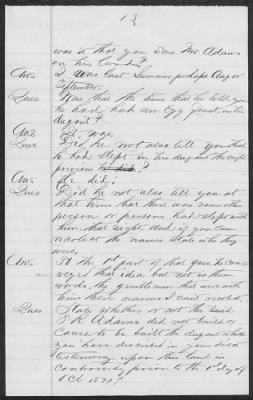 13
was it that you saw Mr Adams
on his land?
Ans I was last Summer perhaps Aug or
September.
Ques Was that the time that he told you
he had, had an Egg feast, in the
dugout?
Ans It was.
Ques Did he not also tell you that
he had slept in his dugout the night
previous
Ans He did;
Ques Did he not also tell you at
that time that there was some other
person or persons had slept with
him that night. And if you can
recolect the names state who they
were,
Ans To the 1st part of that ques he conv
eyed that idea but not in them
words. the gentlemen that were with
him their names I can't recolect.
Ques State whether or not the said
E R Adams did not build or
cause to be built the dugout which
you have described in your direct
testimony upon this land in
controversy prior to the day of
Oct 1890?